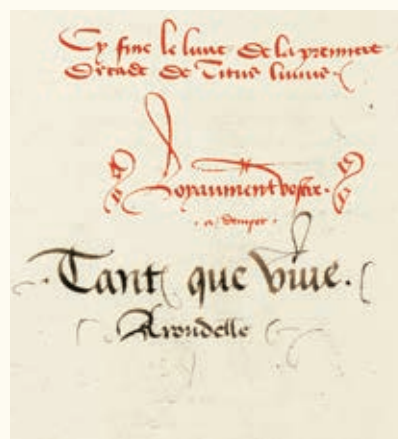 Cy fine le liure de la premiere
decade de Titus liuius
Loyaument vostre
a Demper
Tant que viue.
Arondelle